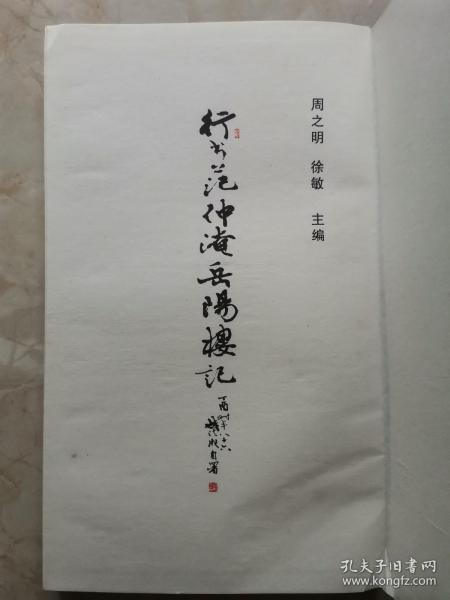 周之明 徐敏 主编
行书范仲淹岳陽樓記
自署
孔夫子旧书网
www.kongfz.com